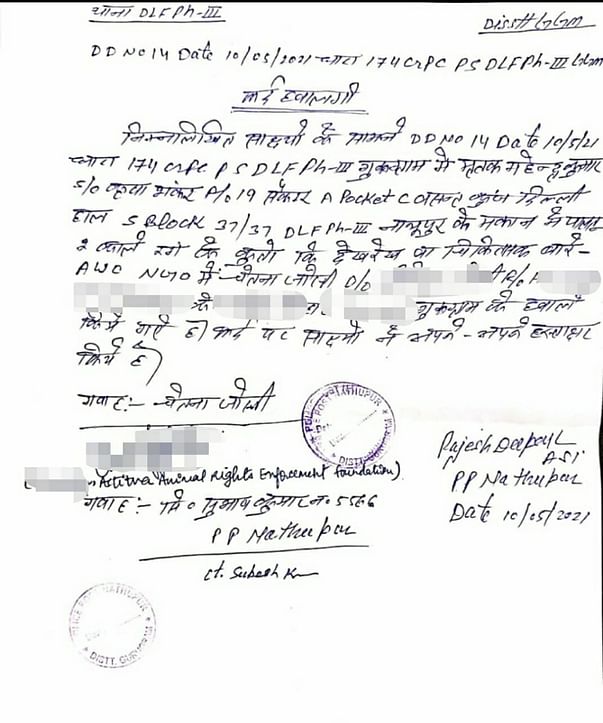 थाना DLF Ph-III Disstt GGM
DD NO 14 Date 10/05/2021 धारा 174 CrPC PS DLF Ph-III GGM
फर्द हवालगी
निम्नलिखित साक्ष्यो के सामने DD NO 14 Date 10/5/21
धारा 174 CrPC PS DLF Ph-III गुरुग्राम मे मृतक महेन्द्र कुमार
S/O शंकर R/O 19 सैक्टर A Pocket C वसन्त कुंज दिल्ली
हाल S Block 37/37 DLF Ph-III नाथूपुर के मकान मे पला
2 काले रंग के कुतो कि देखरेख वा चिकित्सक वारे-
AWO NGO मे:- चेतना जोशी D/O R/O
के गुरुग्राम के हवाले
किये गए है। फर्द पर साक्ष्यो ने अपने-अपने हस्ताक्षर
किये है।
गवाह:- चेतना जोशी
Astitva Animal Rights Enforcement Foundation)
गवाह:- सि० सुभाष कुमार न० 5566
PP Nathupur
ct. Subash Kr
Rajesh Deepak
ASI
PP Nathupur
Date 10/05/2021
POLICE POST NATHUPUR
DISTT. GURUGRAM
POLICE POST NATHUPUR
DISTT. GURUGRAM